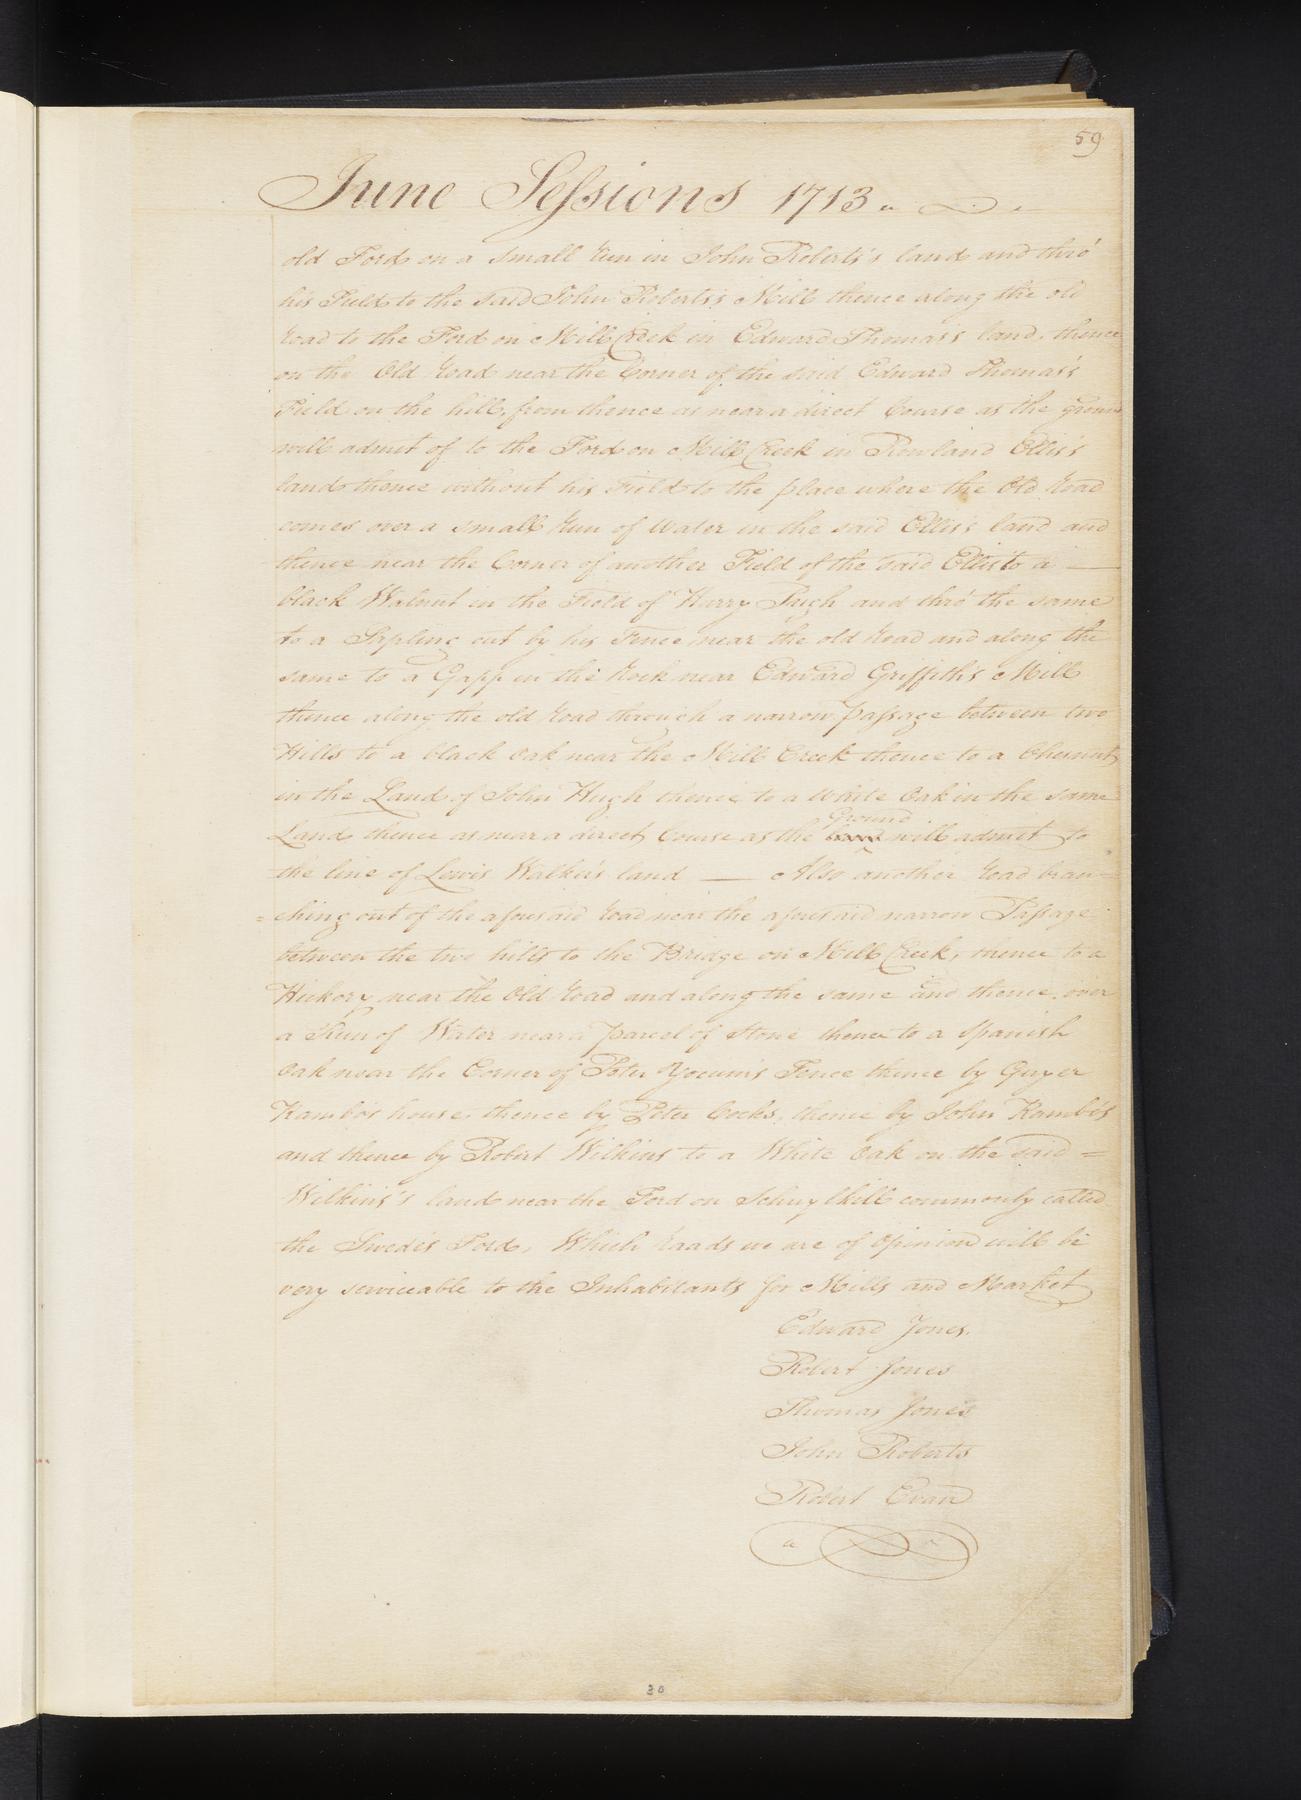 59
June Sessions 1713
old Ford on a small Run in John Roberts's land and thro'
his Field to the said John Roberts's Mill thence along the old
Road to the Ford on Mill Creek in Edward Thomas's land, thence
on the Old Road near the Corner of the said Edward Thomas's
Field on the hill, from thence as near a direct Course as the ground
will admit of to the Ford on Mill Creek in Rowland Ellis's
land thence without his Field to the place where the Old Road
comes over a small Run of Water in the said Ellis's land and
thence near the Corner of another Field of the said Ellis to a —
black Walnut in the Field of Harry Pugh and thro' the same
to a Sapling cut by his Fence near the old Road and along the
same to a Gapp in the Rock near Edward Griffith's Mill
thence along the old Road through a narrow passage between two
Hills to a black Oak near the Mill Creek thence to a Chesnut
in the Land of John Hugh thence to a White Oak in the same
Ground
Land thence as near a direct Course as the will admit to
the line of Lewis Walker's land — Also another Road bran=
=ching out of the aforesaid Road near the aforesaid narrow Passage
between the two hills to the Bridge on Mill Creek, thence to a
Hickory near the Old Road and along the same and thence over
a Run of Water near a parcel of Stone thence to a Spanish
Oak near the Corner of Peter Yocum's Fence thence by Guyer
Kambo's house, thence by Peter Cocks, thence by John Kambo's
and thence by Robert Wilkins to a White Oak on the said =
Wilkins's land near the Ford on Schuylkill commonly called
the Swede's Ford, Which Roads we are of Opinion will be
very serviceable to the Inhabitants for Mills and Market
Edward Jones.
Robert Jones
Thomas Jones
John Roberts
Robert Evan
30